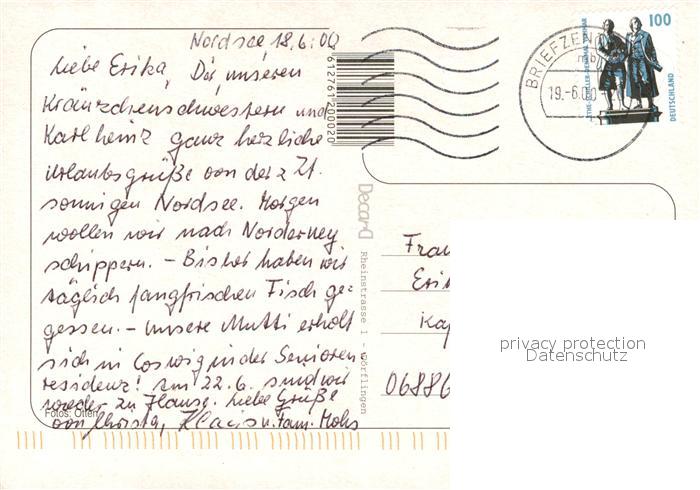 Nordsee 18.6.00
Liebe Erika, Dir, unseren
Kränzchenschwestern und
Karlheinz ganz herzliche
Urlaubsgrüße von der z. Zt.
sonnigen Nordsee. Morgen
wollen wir nach Norderney
schippern. - Bisher haben wir
täglich fangfrischen Fisch ge-
gessen. - Unsere Mutti erholt
sich in Coswig in der Senioren
residenz! Am 22.6. sind wir
wieder zu Hause. Liebe Grüße
von Christa, Klaus u. Fam. Mohs
Fotos: Otten
612761200020
Decard
Rheinstrasse 1 - Dörflingen
BRIEFZEN
19.-6.00
100
DEUTSCHLAND
Frau
06886
privacy protection
Datenschutz